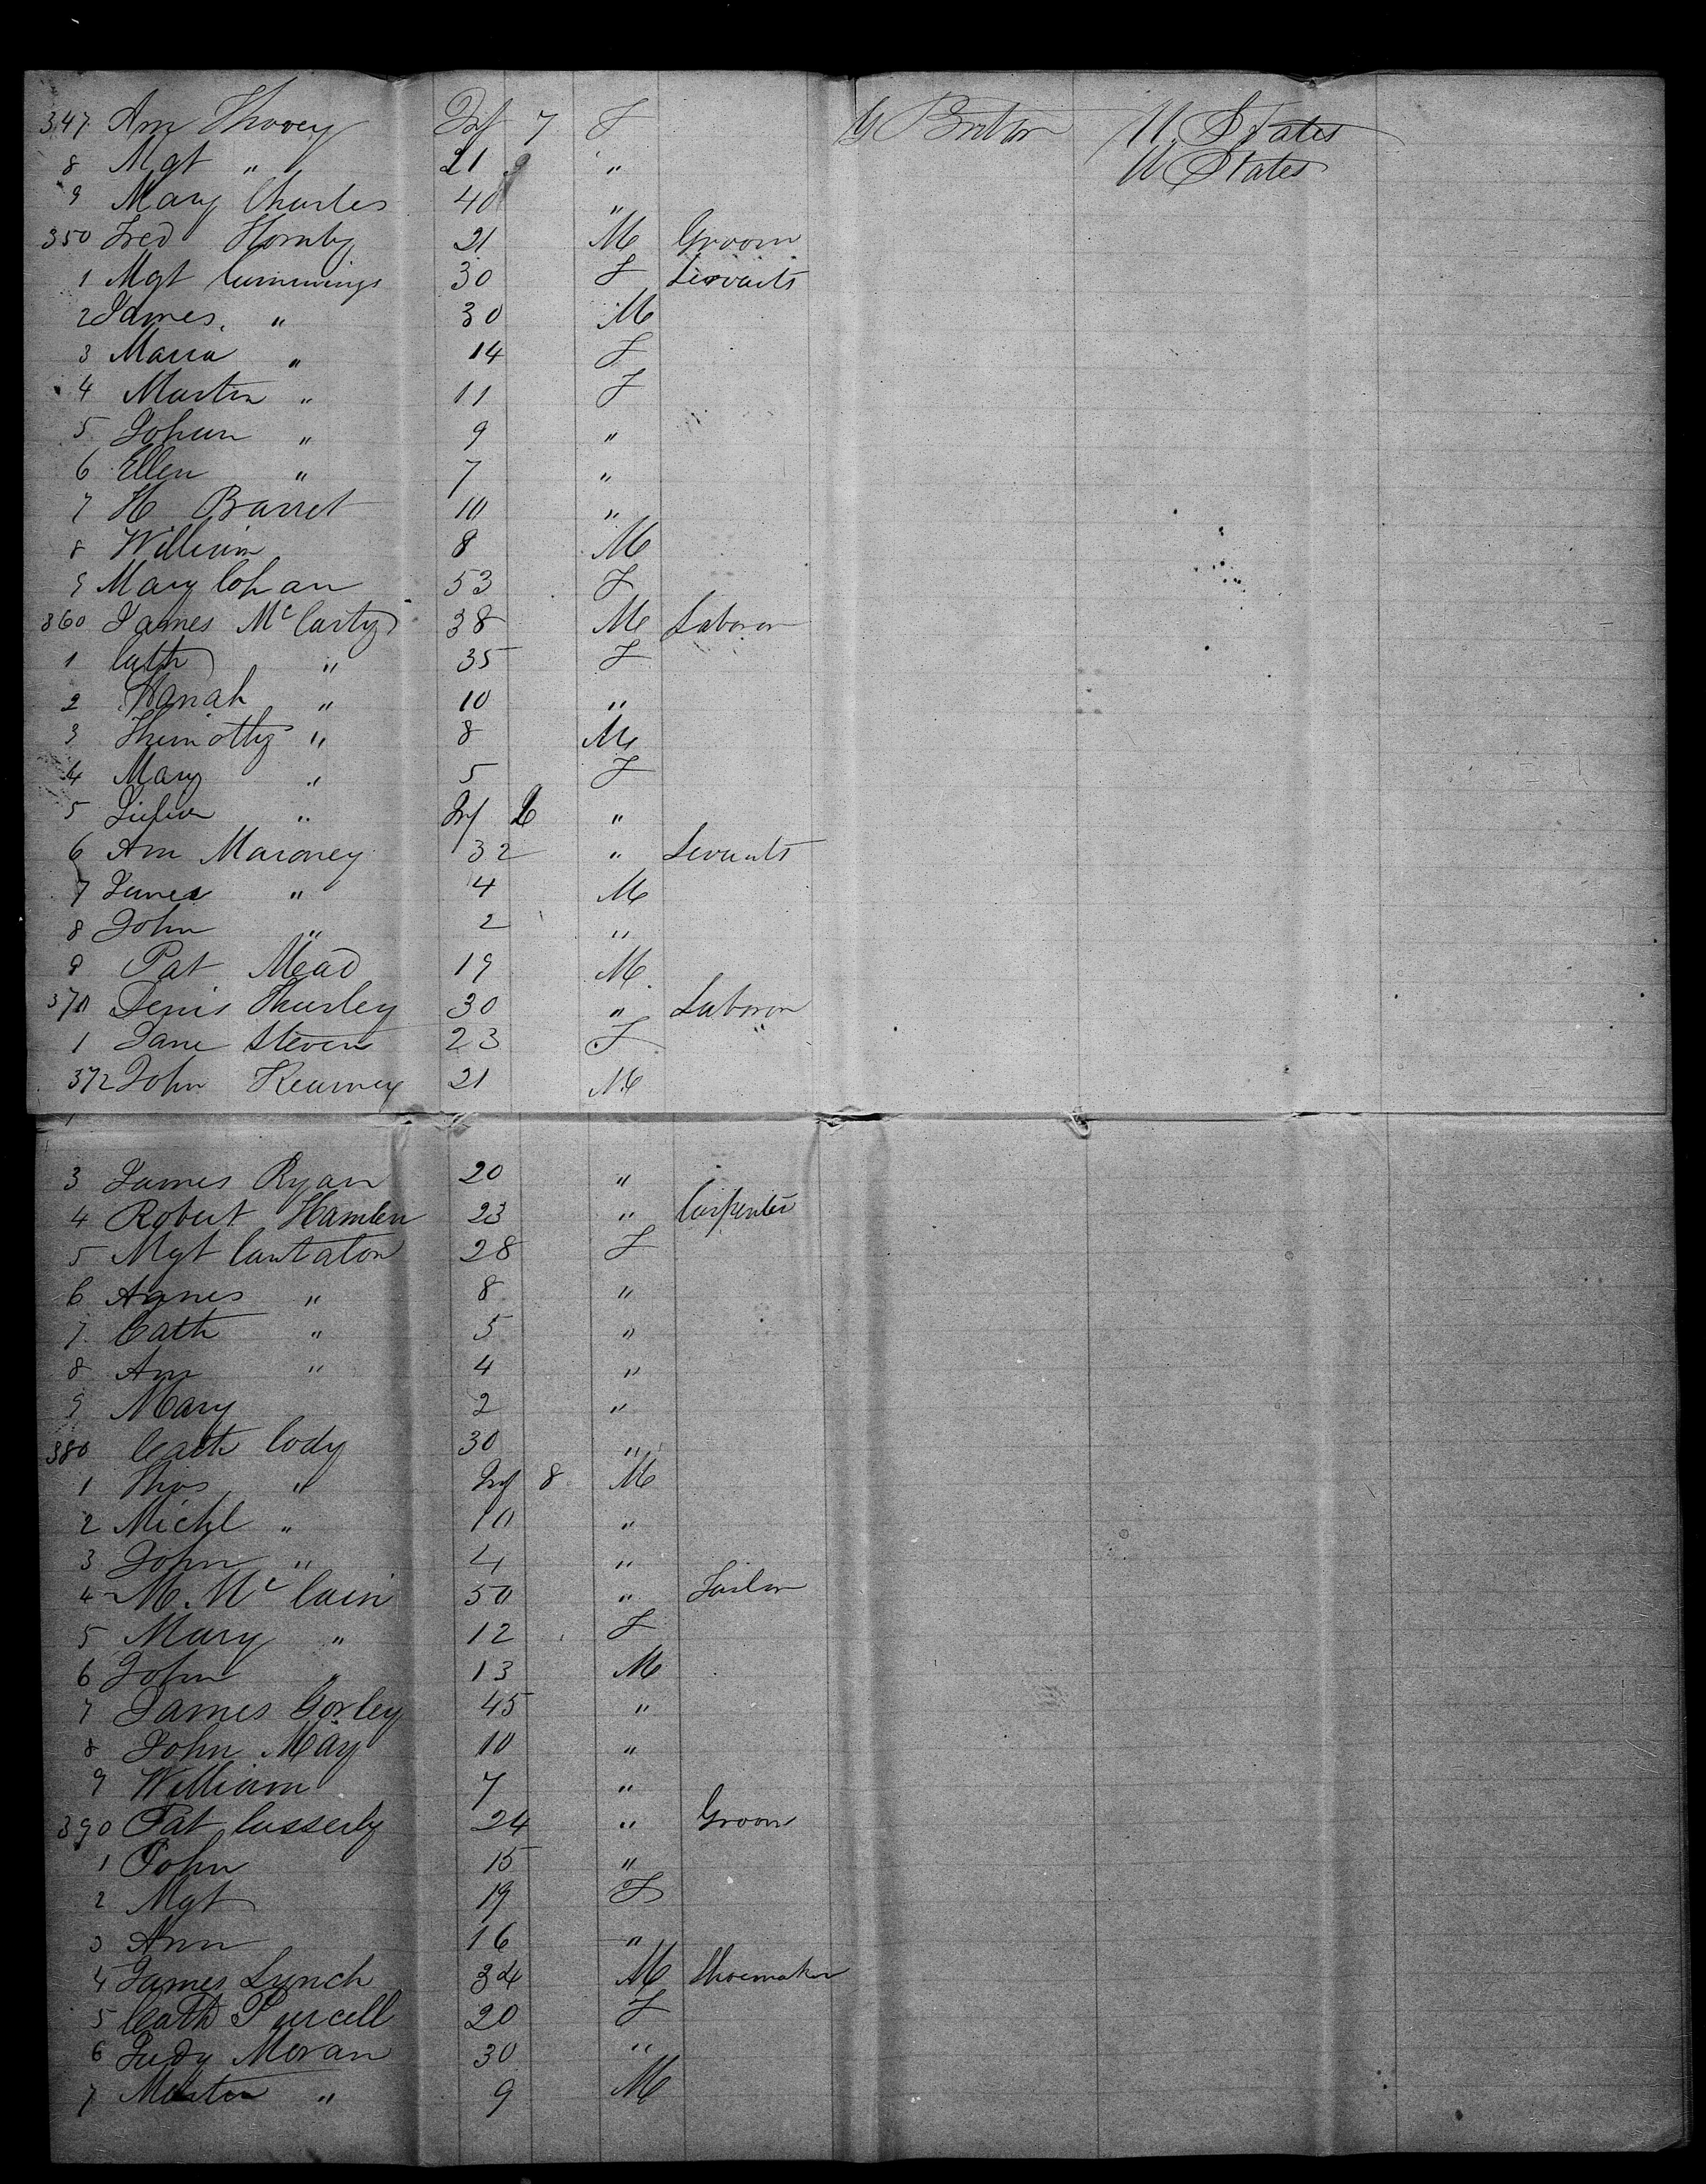 347 Ann Thovey Inf 7 F G Britan U States
8 Mgt " 21 " U States
9 Mary Charles 40 "
350 Fred Hornby 21 M Groom
1 Mgt Cummings 30 F Servants
2 James " 30 M
3 Maria " 14 F
4 Martin " 11 F
5 Johan " 9 "
6 Ellen " 7 "
7 H Barret 10 "
8 William 8 M
9 Mary Cohan 53 F
360 James McCarty 38 M Laboror
1 Cath " 35 F
2 Hanah " 10 "
3 Thimothy " 8 M
4 Mary " 5 F
5 " Inf "
6 Ann Maroney 32 " Servants
7 James " 4 M
8 John " 2 "
9 Pat Mead 19 M
370 Denis Thurley 30 " Laboror
1 Jane Steven 23 F "
372 John Kearney 21 M
3 James Ryan 20 "
4 Robert Hamlen 23 " Carpenter
5 Mgt Cantalon 28 F
6 Agnes " 8 "
7 Cath " 5 "
8 Ann " 4 "
9 Mary 2 "
380 Cath Cody 30 "
1 Thos " Inf 8 M
2 Michl " 10 "
3 John " 4 "
4 M. McCain 50 " Tailor
5 Mary " 12 F
6 John " 13 M
7 James Gorley 45 "
8 John May 10 "
9 William 7 "
390 Pat Casserly 24 " Groom
1 John 15 "
2 Mgt 19 F
3 Ann 16 "
4 James Lynch 34 M Shoemaker
5 Cath Purcell 20 F
6 Judy Moran 30 "
7 Martin " 9 M